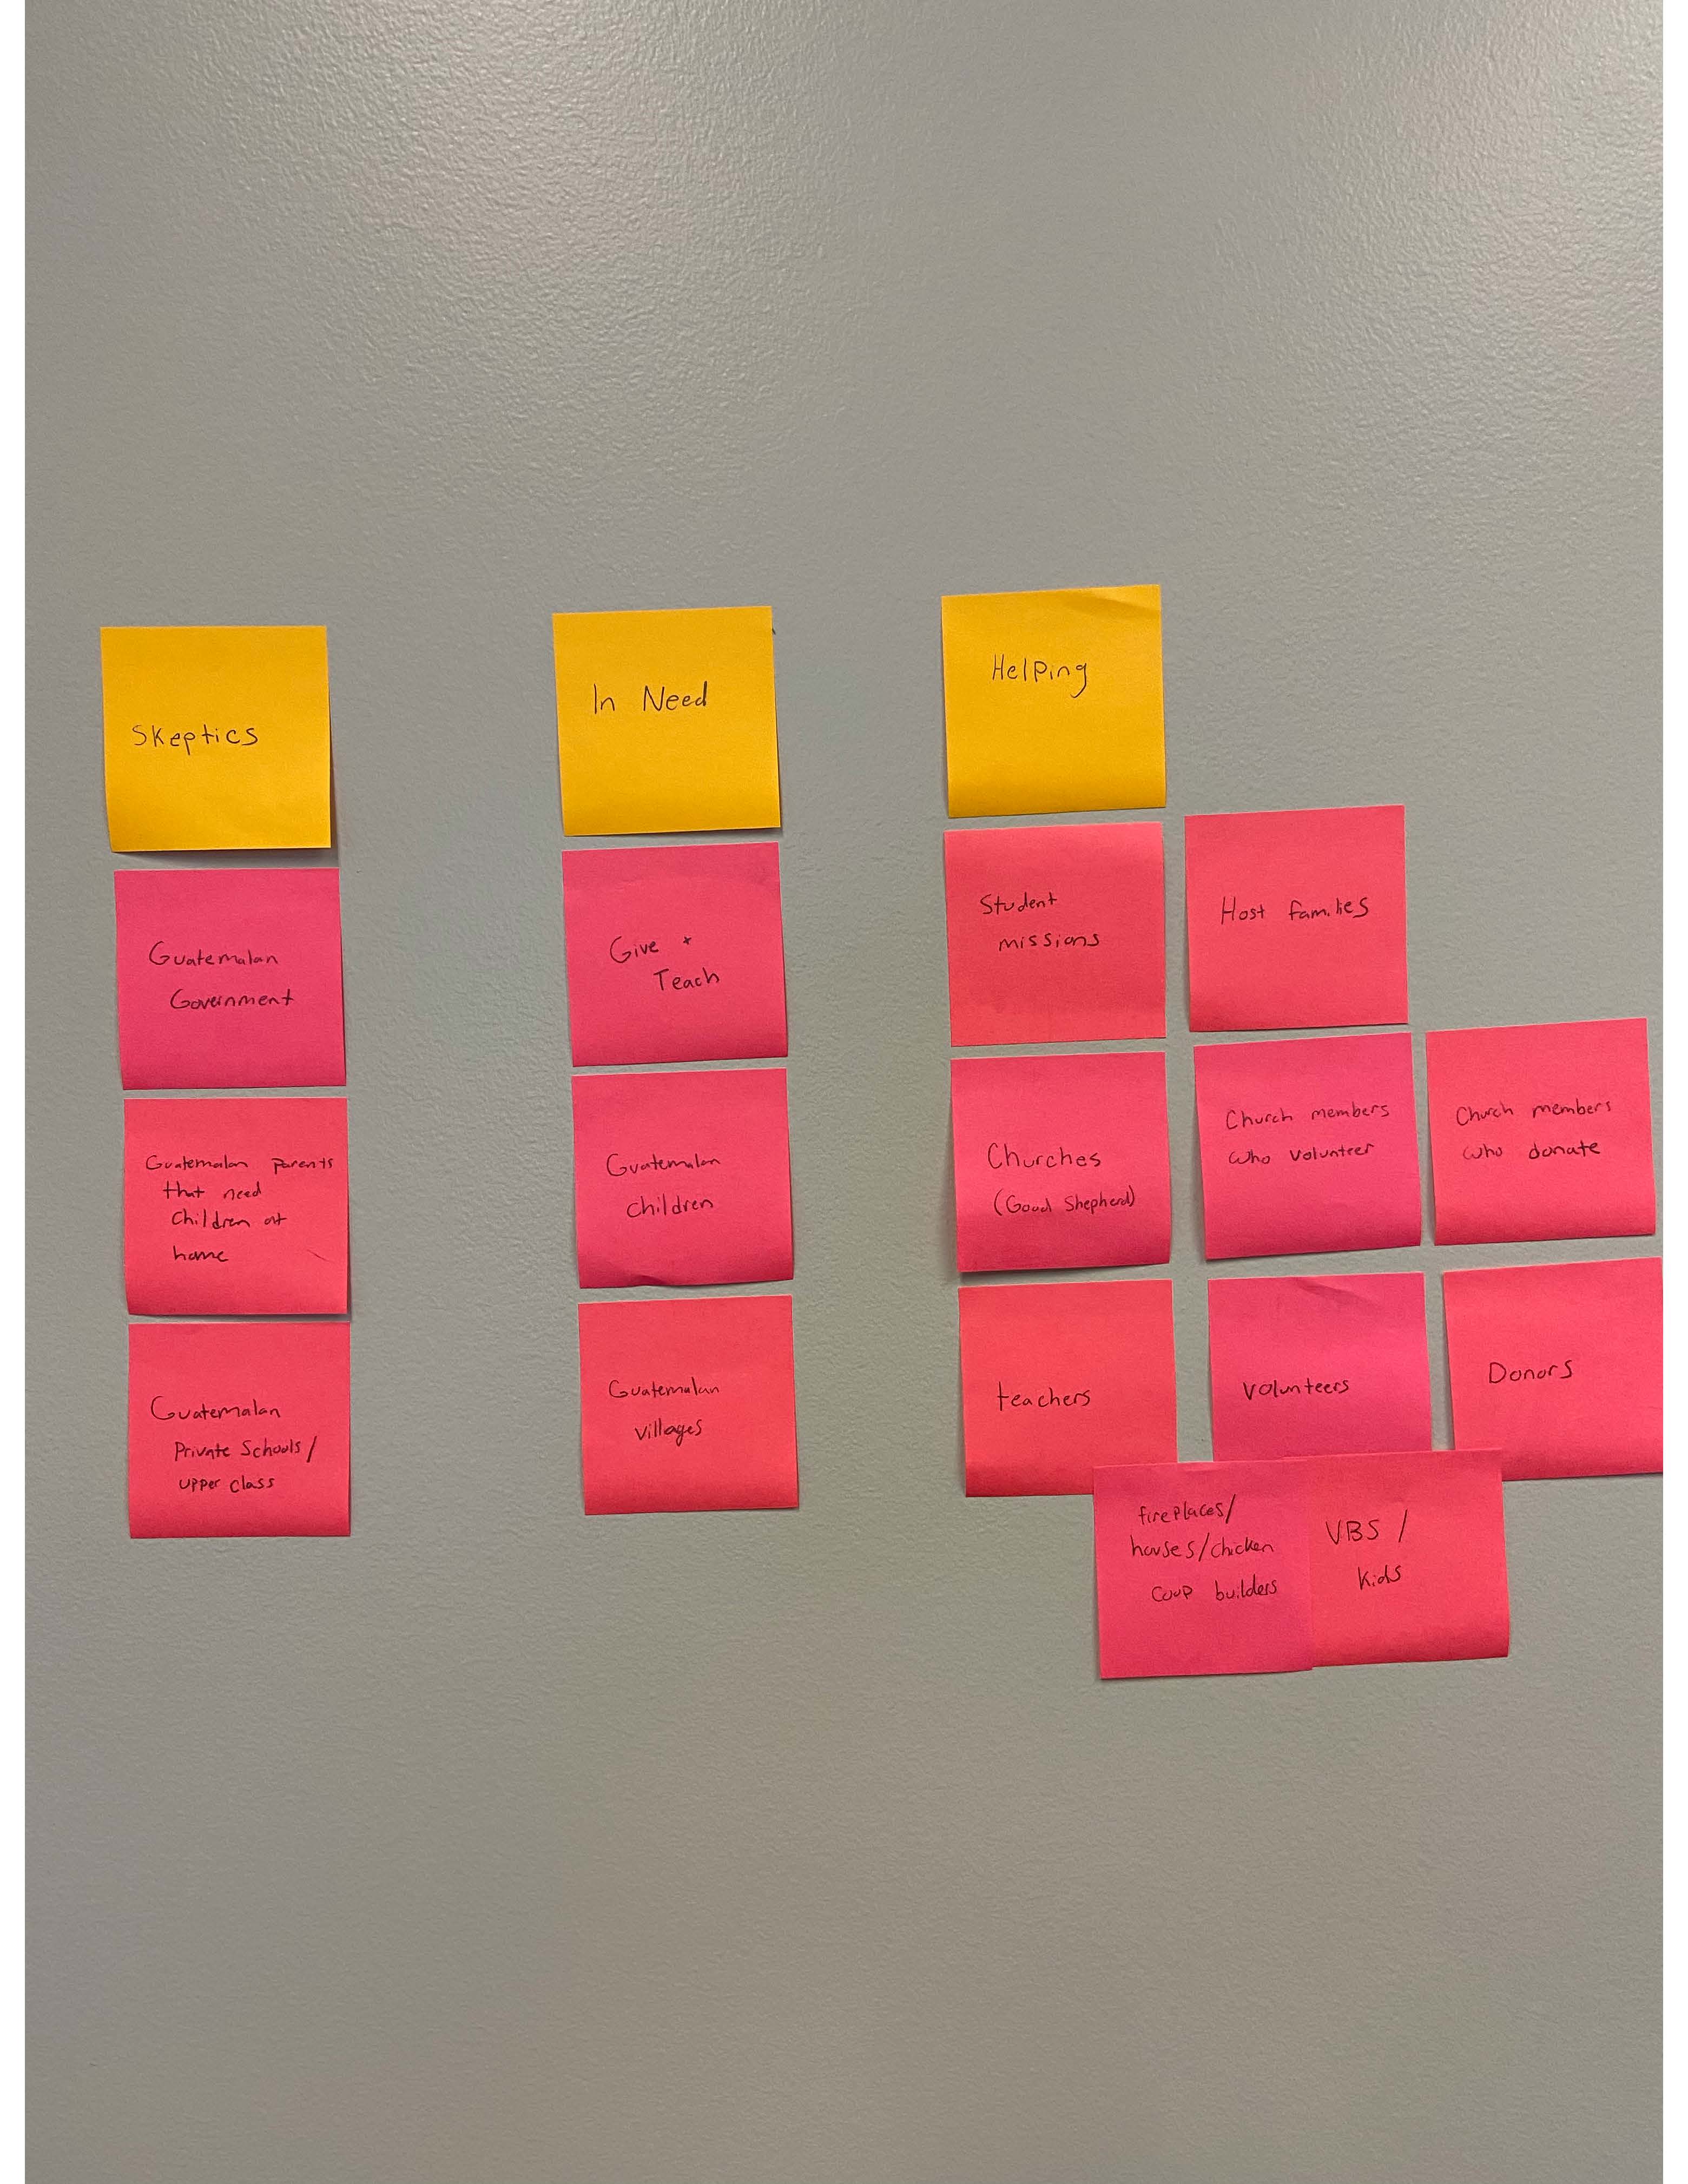 Skeptics
Guatemalan
Government
Guatemalan parents
that need
children at
home
Guatemalan
Private Schools/
upper class
In Need
Give +
Teach
Guatemalan
children
Guatemalan
villages
Helping
Student
missions
Host families
Churches
(Good Shepherd)
Church members
who volunteer
Church members
who donate
teachers
volunteers
Donors
fireplaces/
houses/chicken
coop builders
VBS /
kids